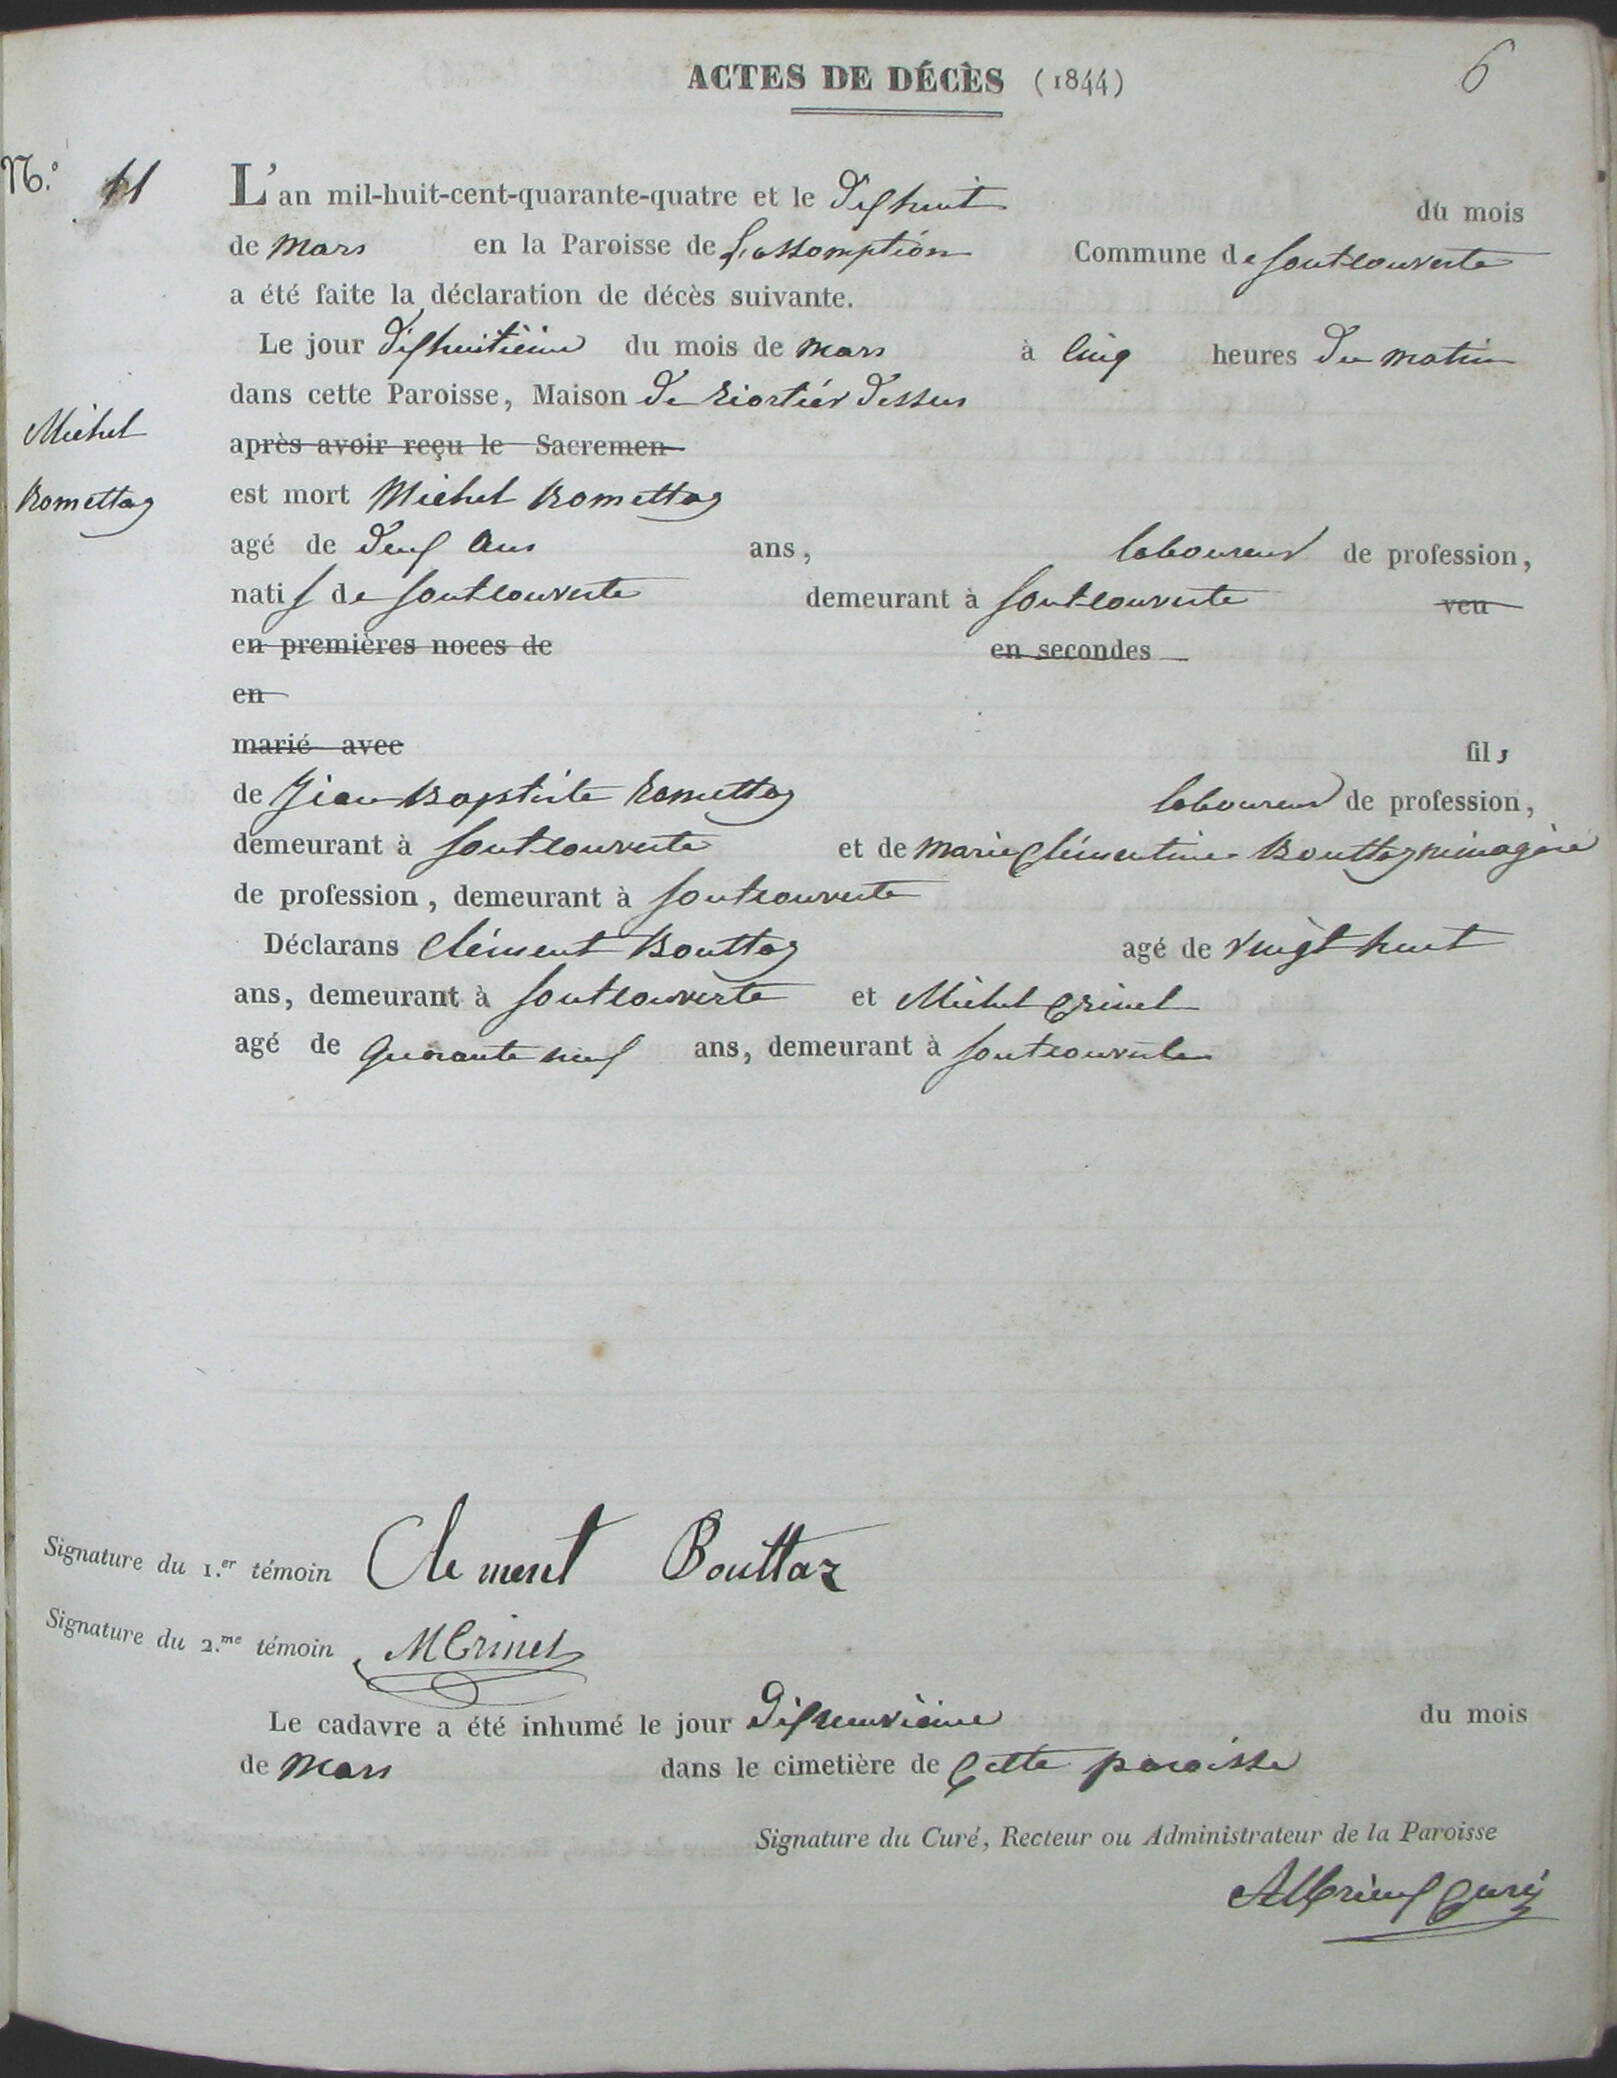 ACTES DE DÉCÈS (1844)
6
N.o 11
L'an mil-huit-cent-quarante-quatre et le dixhuit du mois
de Mars en la Paroisse de L'assomption Commune de fontcouverte
a été faite la déclaration de décès suivante.
Le jour dixhuitième du mois de mars à Cinq heures du matin
dans cette Paroisse, Maison de riortier dessus
Michel
après avoir reçu le Sacremen
Romettaz
est mort Michel Romettaz
agé de deux ans ans, laboureur de profession,
natif de fontcouverte demeurant à fontcouverte veu
en premières noces de en secondes
en
marié avec fils
de Jean Baptiste romettaz laboureur de profession,
demeurant à fontcouverte et de marie Clémentine Bouttaz ménagère
de profession, demeurant à fontcouverte
Déclarans Clément Bouttaz agé de vingt huit
ans, demeurant à fontcouverte et Michel Crinel
agé de Quarante neuf ans, demeurant à fontcouverte
Signature du 1.er témoin Clement Bouttaz
Signature du 2.me témoin M Crinel
Le cadavre a été inhumé le jour dixneuvième du mois
de Mars dans le cimetière de Cette paroisse
Signature du Curé, Recteur ou Administrateur de la Paroisse
Curé